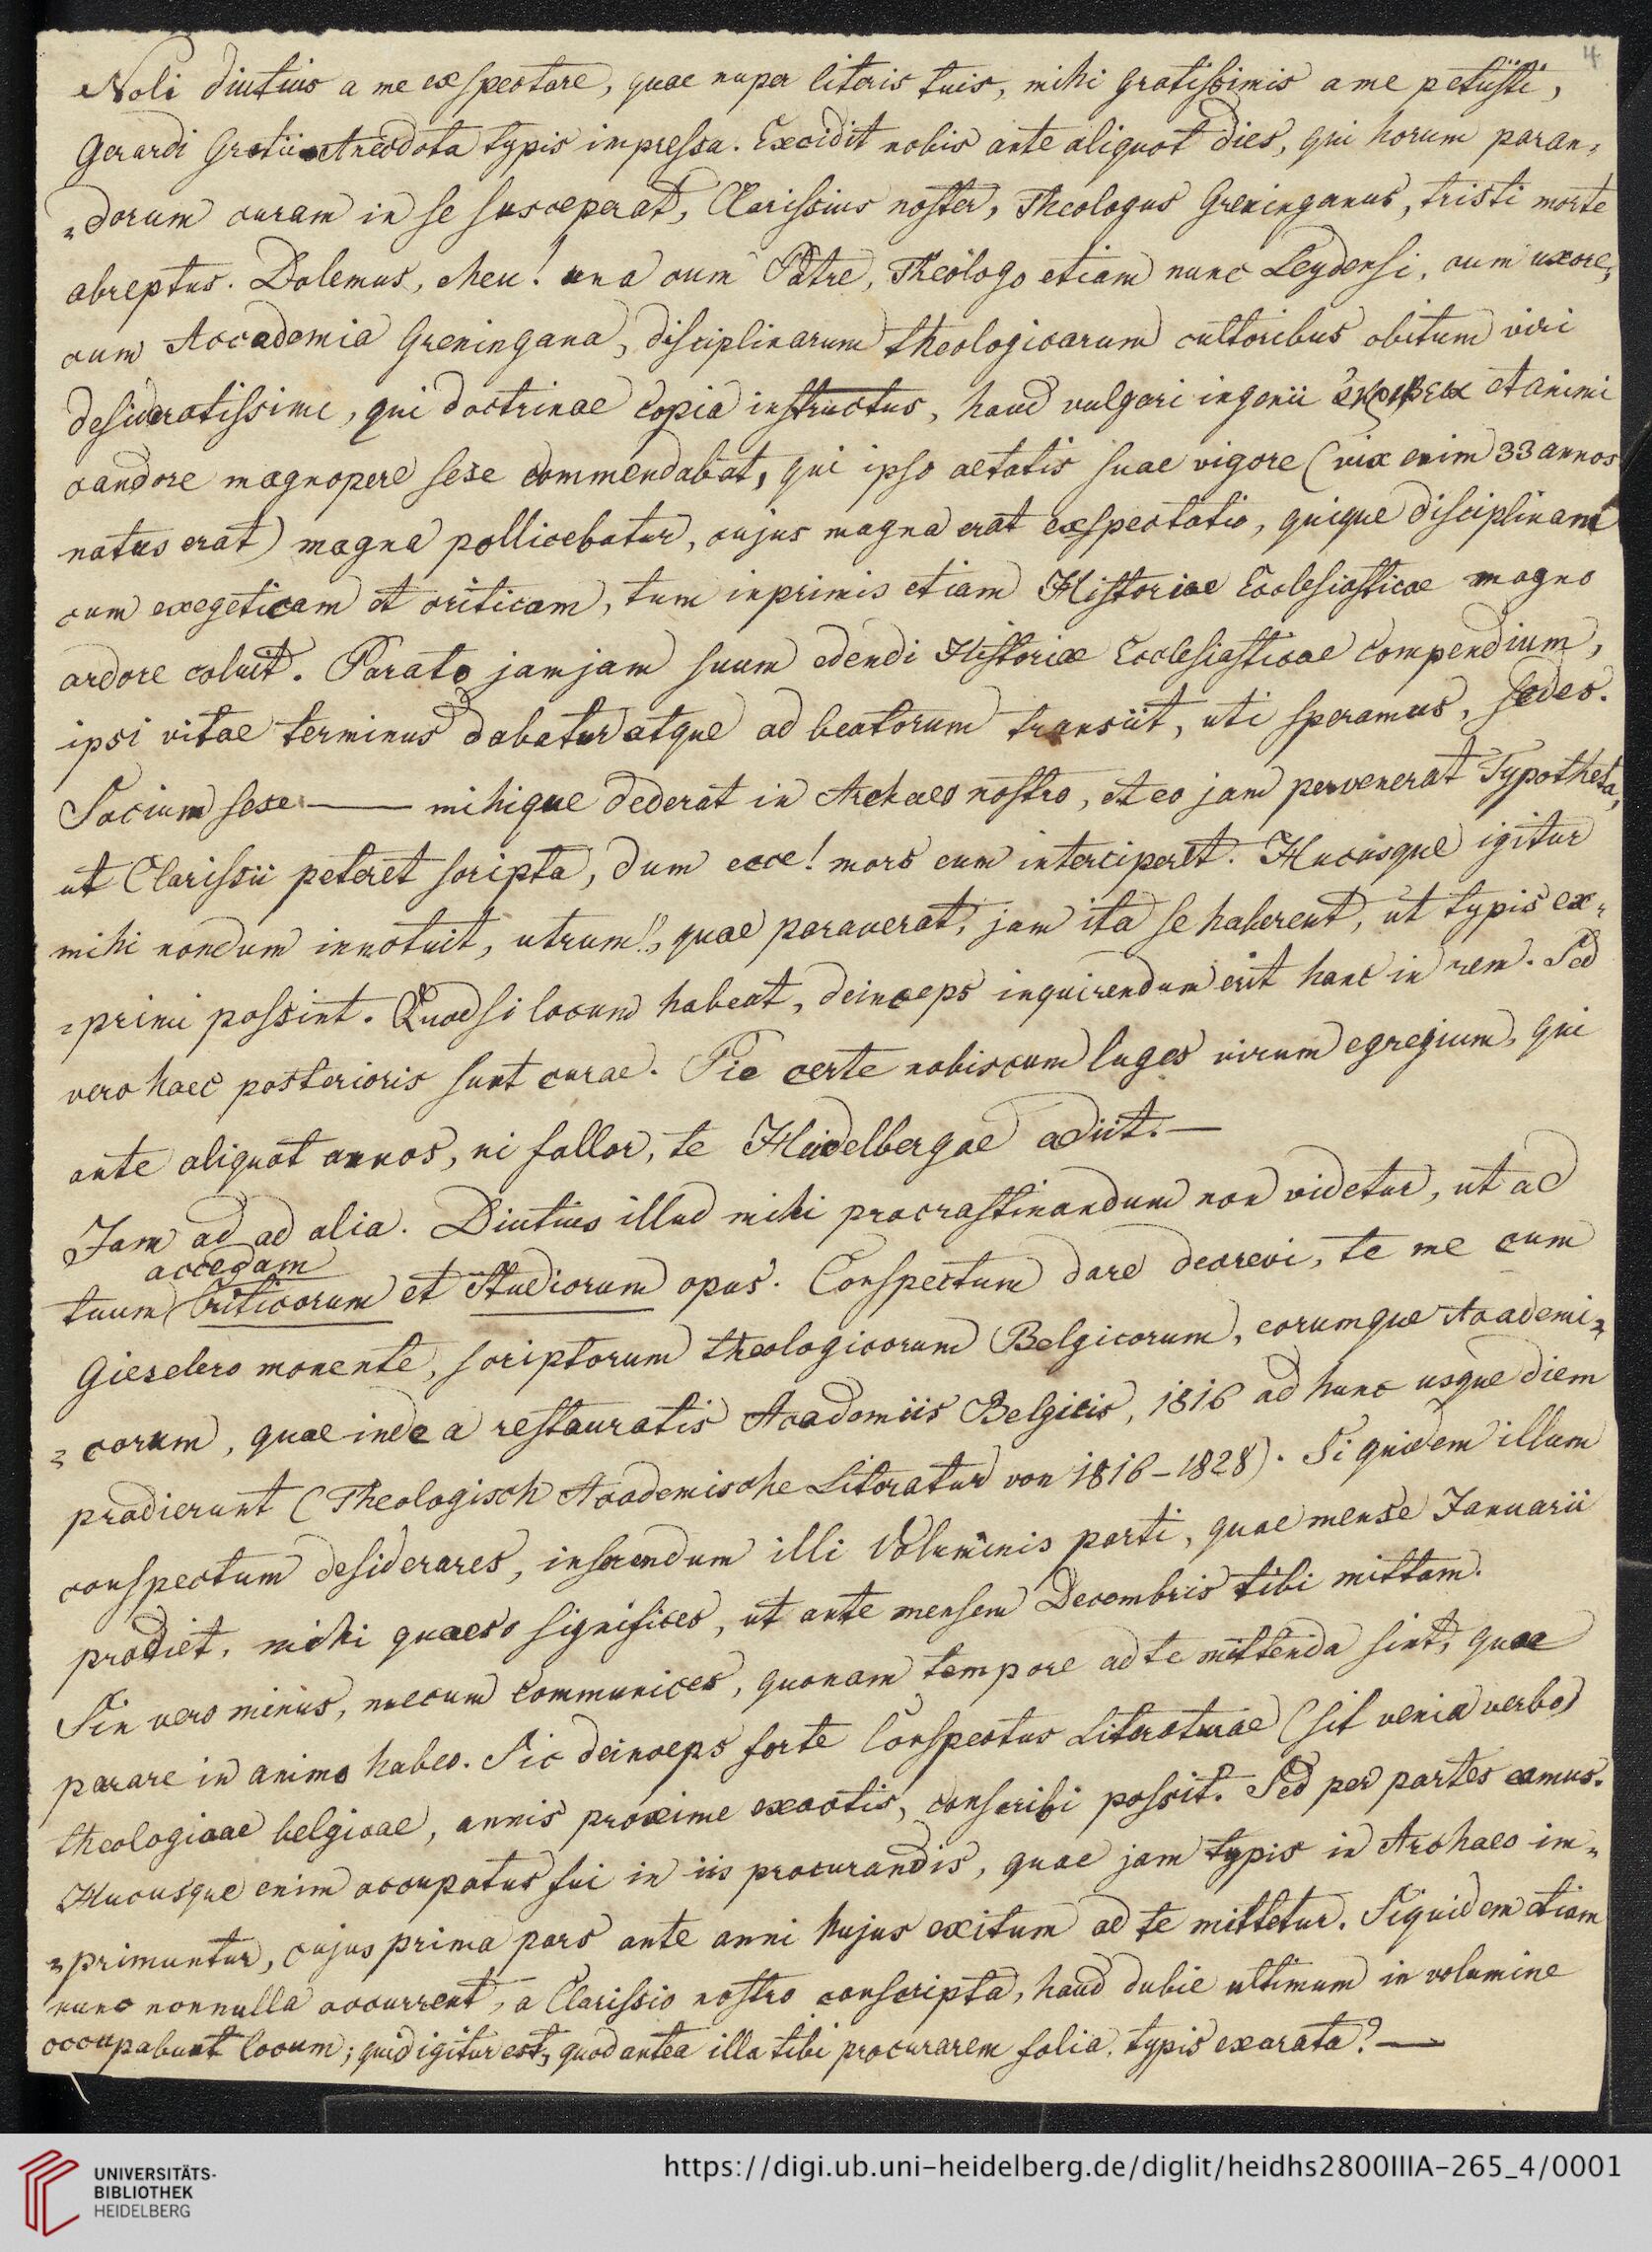 4
Noli diutius a me exspectare, quae nuper literis tuis, mihi gratissimis a me petiisti,
Gerardi Grotii Anecdota typis impressa. Excidit nobis ante aliquot dies, qui horum paran=
=dorum curam in se susceperat, Clarissius noster, Theologus Greninganus, tristi morte
abreptus. Dolemus, eheu! una cum Patre, Theologo etiam nunc Leydensi, cum uxore,
cum Accademia Greningana, disciplinarum theologicarum cultoribus obitum viri
desideratissimi, qui doctrinae copia instructus, haud vulgari ingenii ἀκριβεια et animi
candore magnopere sese commendabat, qui ipso aetatis suae vigore (vix enim 33 annos
natus erat) magna pollicebatur, cujus magna erat exspectatio, quique disciplinam
cum exegeticam et criticam, tum inprimis etiam Historiae Ecclesiasticae magno
ardore coluit. Parato jamjam suum edendi Historiae Ecclesiasticae Compendium,
ipsi vitae terminus dabatur atque ad beatorum transiit, uti speramus, sedes.
Socium sese —— mihique dederat in Archaeo nostro, et eo jam pervenerat Typotheta,
ut Clarissii peteret scripta, dum ecce! mors eum interciperet. Hucusque igitur
mihi nondum innotuit, utrum, quae paraverat, jam ita se haberent, ut typis ex=
=primi possint. Quodsi locum habeat, deinceps inquirendum erit hanc in rem. Sed
vero haec posterioris sunt curae. Pie certe nobiscum luges virum egregium, qui
ante aliquot annos, ni fallor, te Heidelbergae adiit.—
Jam ad ad alia. Diutius illud mihi procrastinandum non videtur, ut ad
accedam
tuum Criticorum et Studiorum opus. Conspectum dare decrevi, te me cum
Gieselero monente, scriptorum theologicorum Belgicorum, eorumque Academi=
=corum, quae inde a restauratis Academiis Belgicis, 1816 ad hunc usque diem
prodierunt (Theologisch Academische Literatur von 1816–1828). Si quidem illum
conspectum desiderares, inserendum illi Voluminis parti, quae mense Januarii
prodiet, mihi quaeso significes, ut ante mensem Decembris tibi mittam.
Sin vero minus, mecum communices, quonam tempore ad te mittenda sint, quae
parare in animo habeo. Sic deinceps forte Conspectus Literaturae (sit venia verbo)
theologicae belgicae, annis proxime exactis, conscribi possit. Sed per partes eamus.
Hucusque enim occupatus fui in iis procurandis, quae jam typis in Archaeo im=
=primuntur, cujus prima pars ante anni hujus exitum ad te mittetur. Siquidem etiam
nunc nonnulla occurrent, a Clarissio nostro conscripta, haud dubie ultimum in volumine
occupabunt locum; quid igitur est, quod antea illa tibi procurarem folia typis exarata?—
UNIVERSITÄTS-
BIBLIOTHEK
HEIDELBERG
https://digi.ub.uni-heidelberg.de/diglit/heidhs2800IIIA-265_4/0001